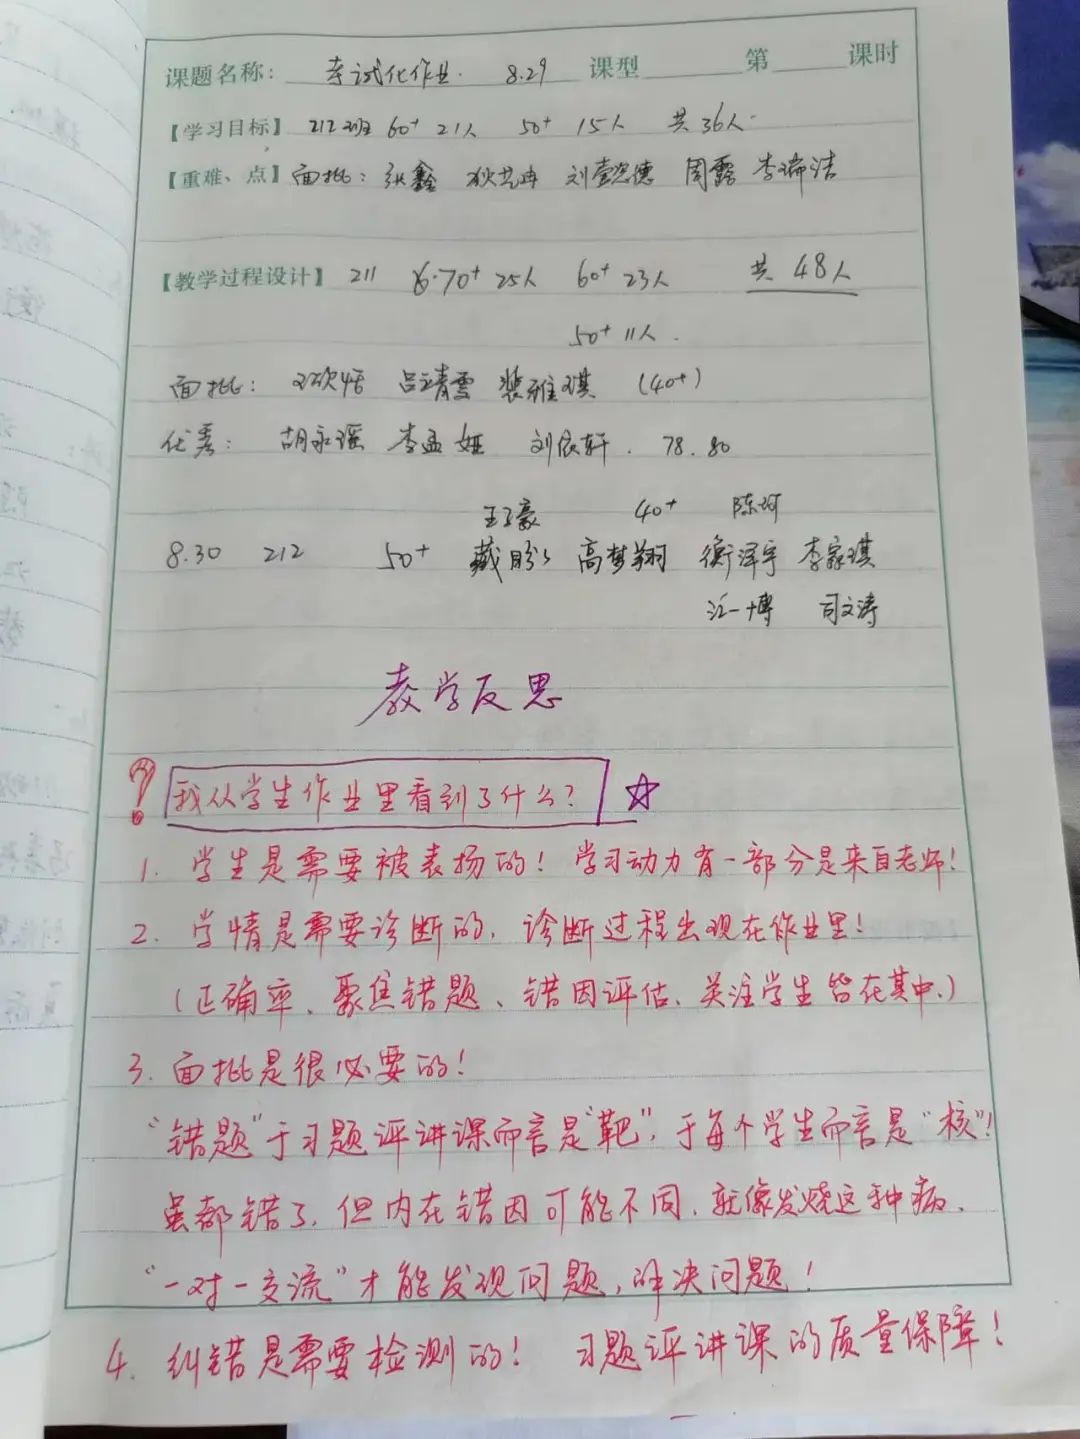 课题名称： 考试化作业. 8.29 课型 第 课时
【学习目标】 212班 60⁺ 21人 50⁺ 15人 共36人.
【重难、点】 面批： 张鑫 狄艺冉 刘德 周露 李瑞洁
【教学过程设计】 211 70⁺ 25人 60⁺ 23人 共 48人
50⁺ 11人.
面批： 吕靖雯 裴雅琪 (40⁺)
优秀： 胡永瑶 李孟娅 刘依轩. 78. 80
王子豪 40⁺ 陈珂
8.30 212 50⁺ 臧盼 高梦翔 衡泽宇 李家琪
汪一博 司文涛
教学反思
我从学生作业里看到了什么？
1. 学生是需要被表扬的！ 学习动力有一部分是来自老师！
2. 学情是需要诊断的, 诊断过程出现在作业里！
(正确率、聚焦错题、错因评估、关注学生皆在其中.)
3. 面批是很必要的！
“错题”于习题评讲课而言是“靶”, 于每个学生而言是“核”！
虽都错了, 但内在错因可能不同, 就像发烧这种病,
“一对一交流”才能发现问题, 解决问题！
4. 纠错是需要检测的！ 习题评讲课的质量保障！